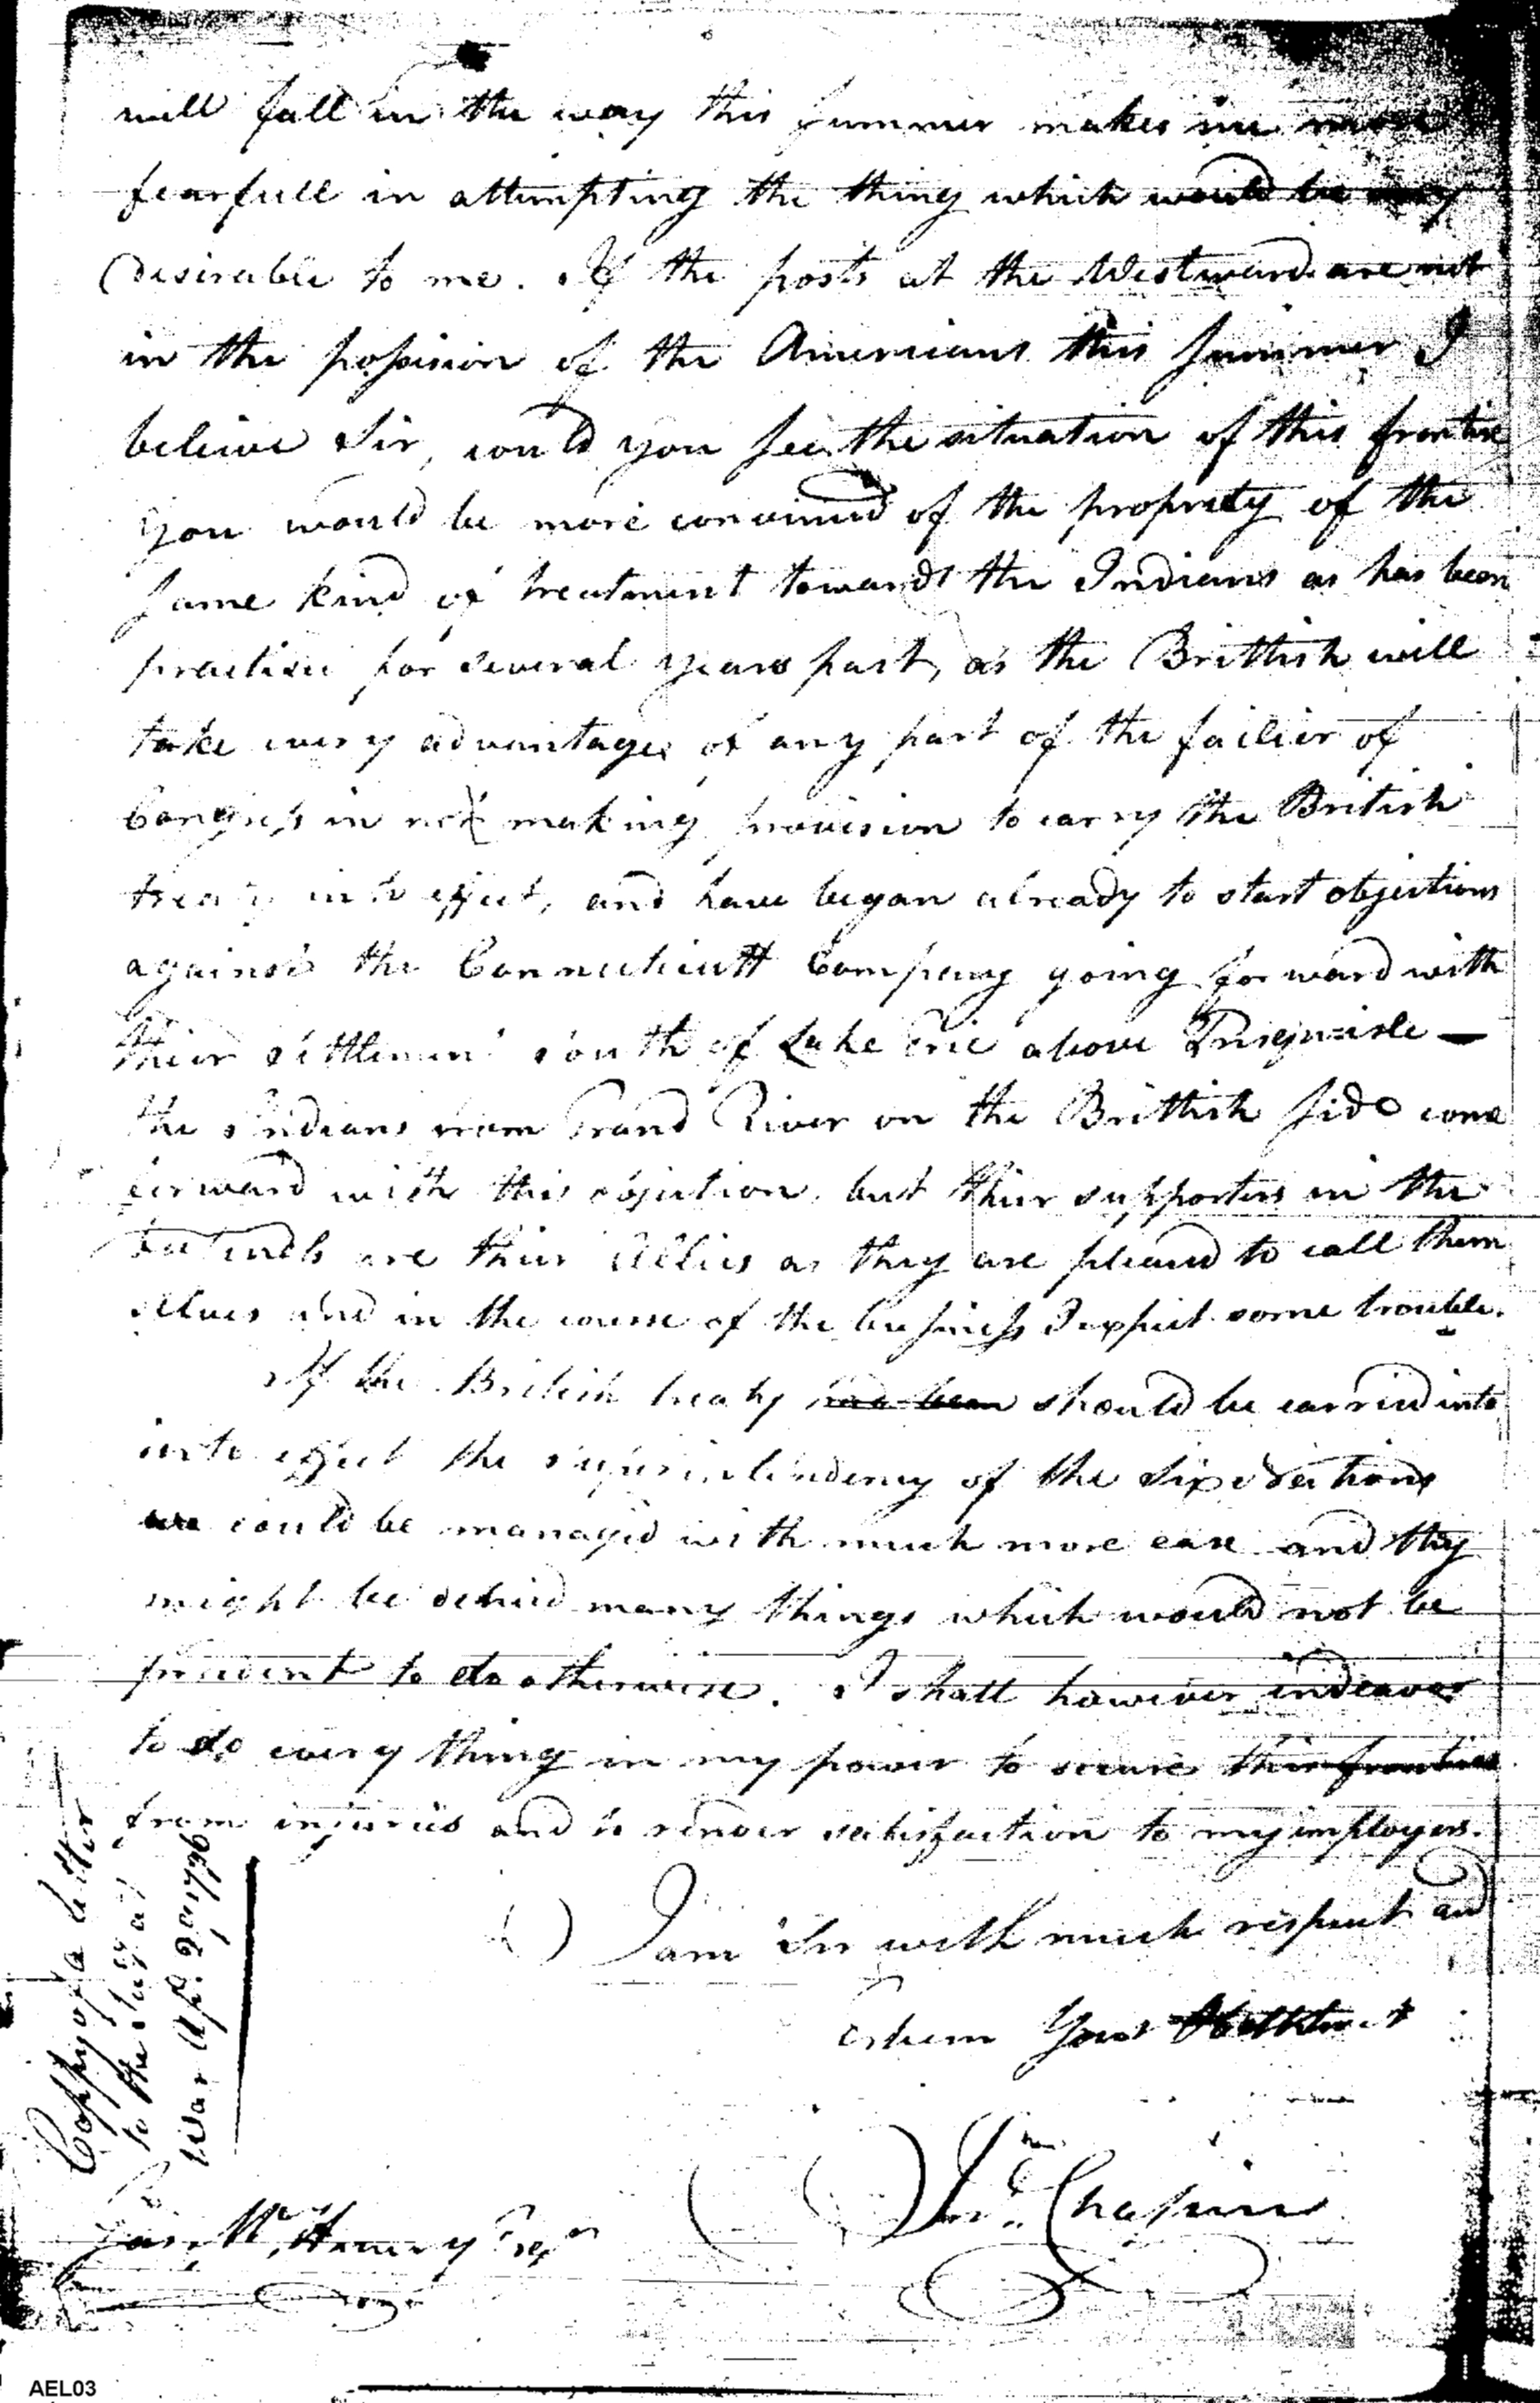 will fall in the way this summer makes me more
fearfull in attempting the thing which would be very
desirable to me. If the posts at the Westward are not
in the possision of the Americans this summer I
believe Sir, could you see the situation of this frontire
you would be more convinced of the propriety of the
same kind of treatment towards the Indians as has been
practise for several years past, as the Brittish will
take every advantage of any part of the failier of
Congress in not making provision to carry the British
treaty into effect, and have began already to start objections
against the Connecticutt Company going forward with
their settlement south of Lake Erie above Prisquisle —
the Indians from Grand River on the Brittish side come
forward with this objection, but their supporters in the
are their Allies as they are pleased to call them
selves and in the course of the business I expect some trouble.
If the British treaty had been should be carried into
into effect the superintendency of the Six Nations
could be managed with much more ease and they
might be denied many things which would not be
prudent to do otherwise. I shall however indeavor
to do every thing in my power to secure this frontier
from injuries and to render satisfaction to my employers.
I am Sir with much respect and
Esteem Your
Isr<sup>l</sup> Chapin
Jas. Mc. Henry Esqr
Coppy of a letter
to the Sec'y at
War Apl. 29 1796
AEL03